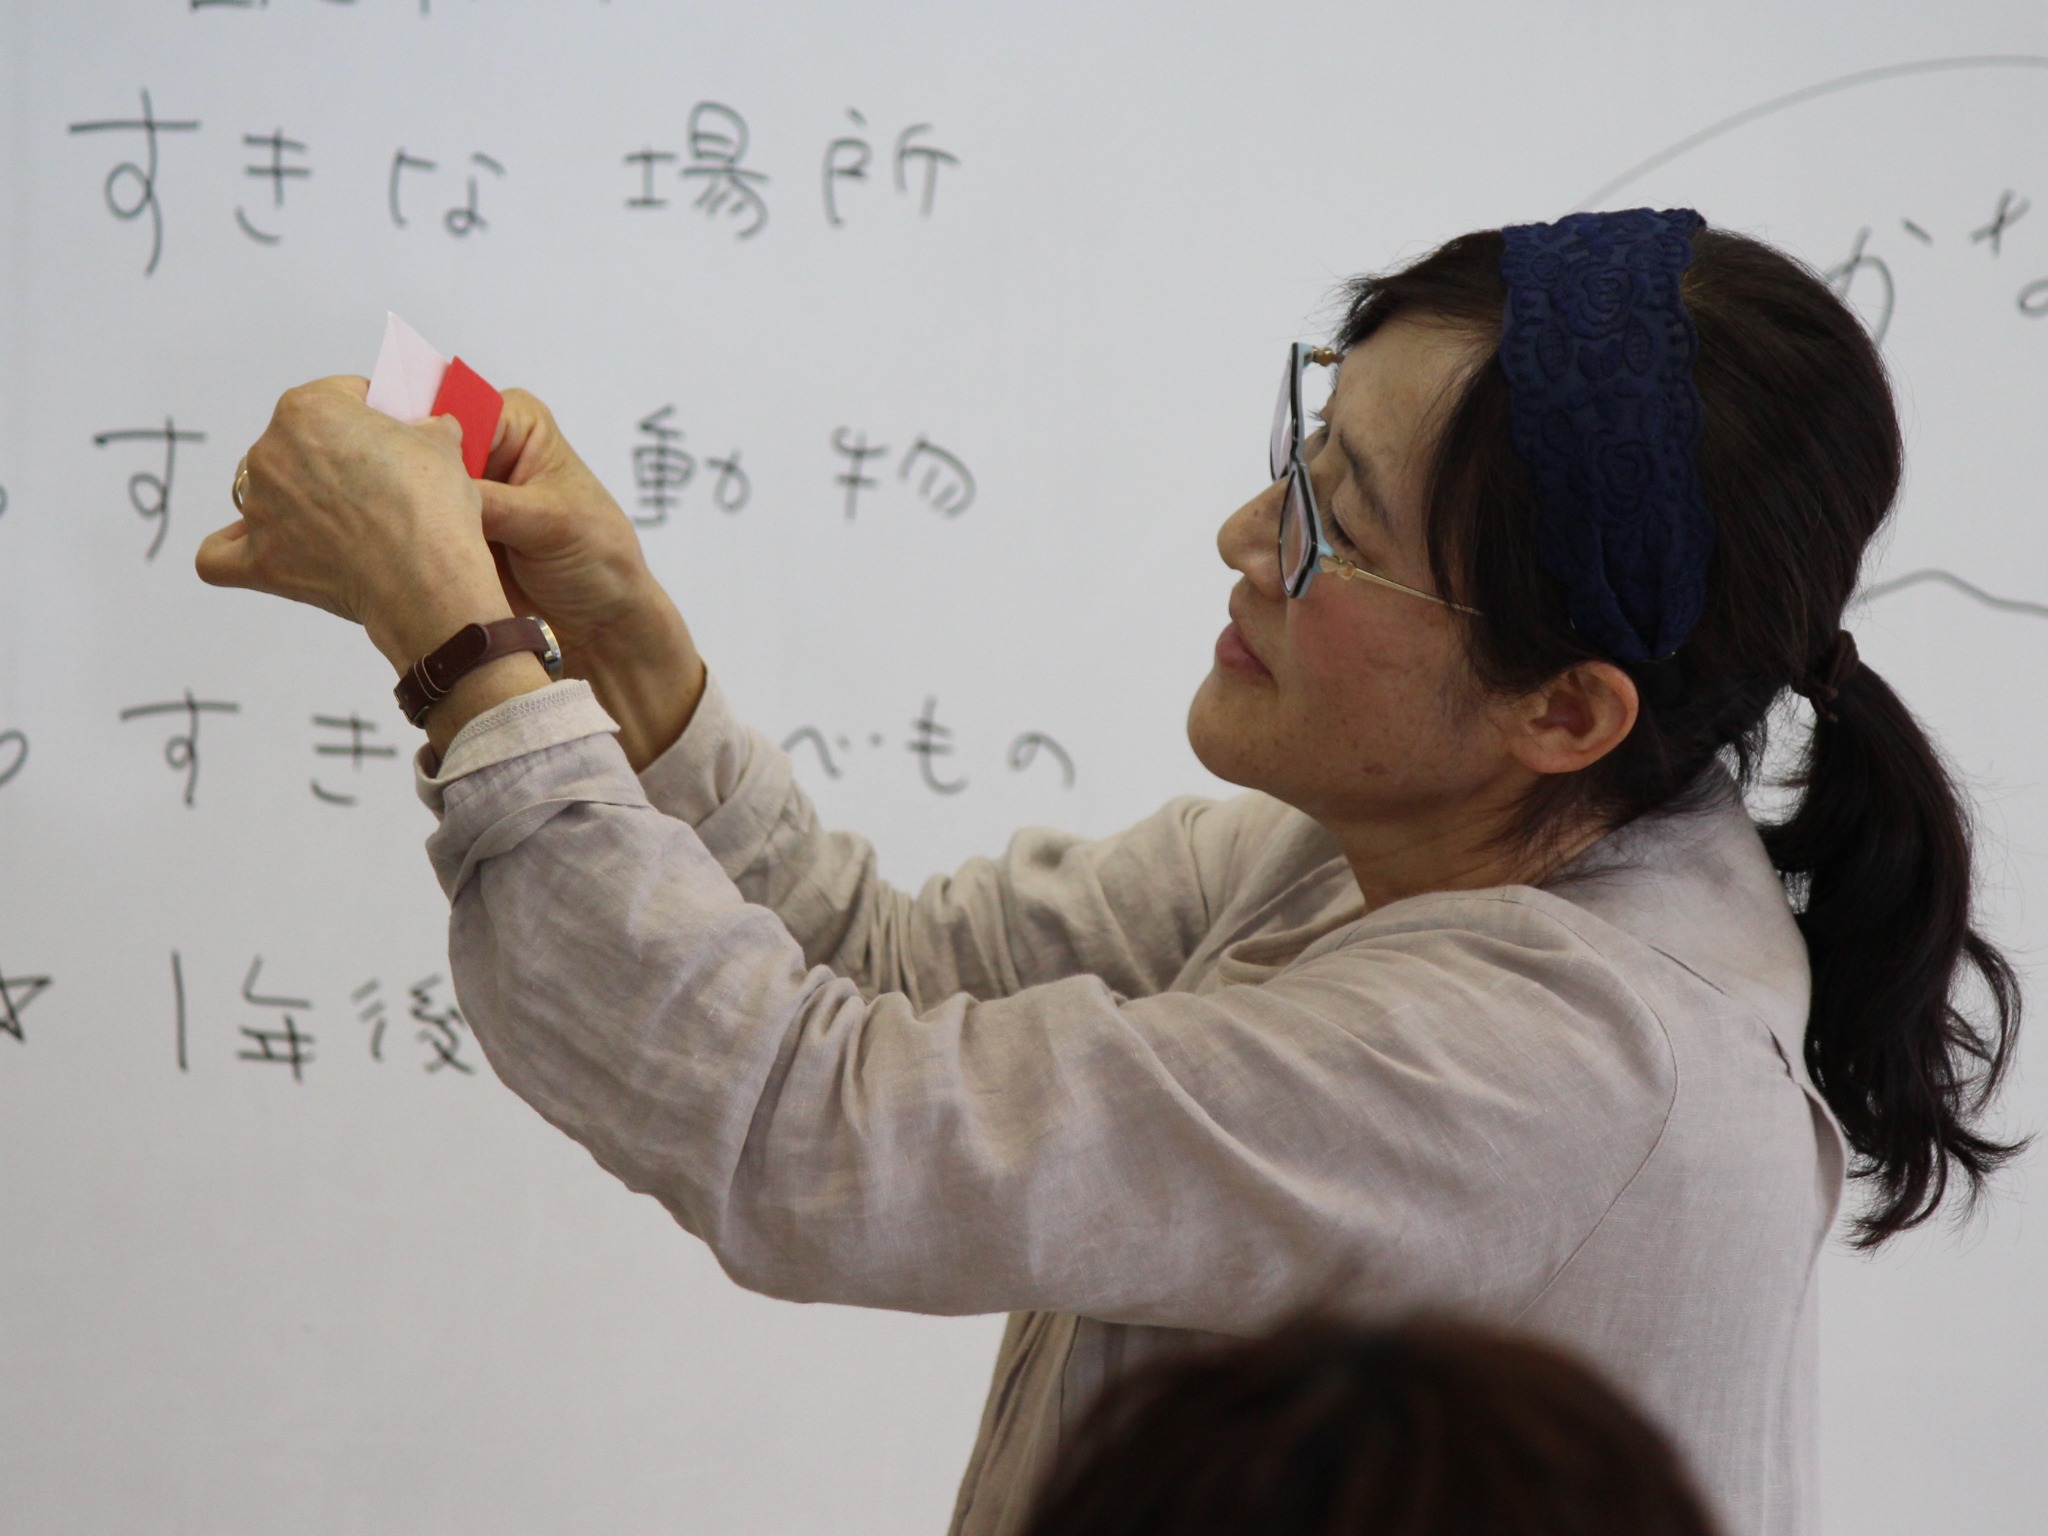 すきな 場所
す 動物
すき べもの
☆ 1年後
がな